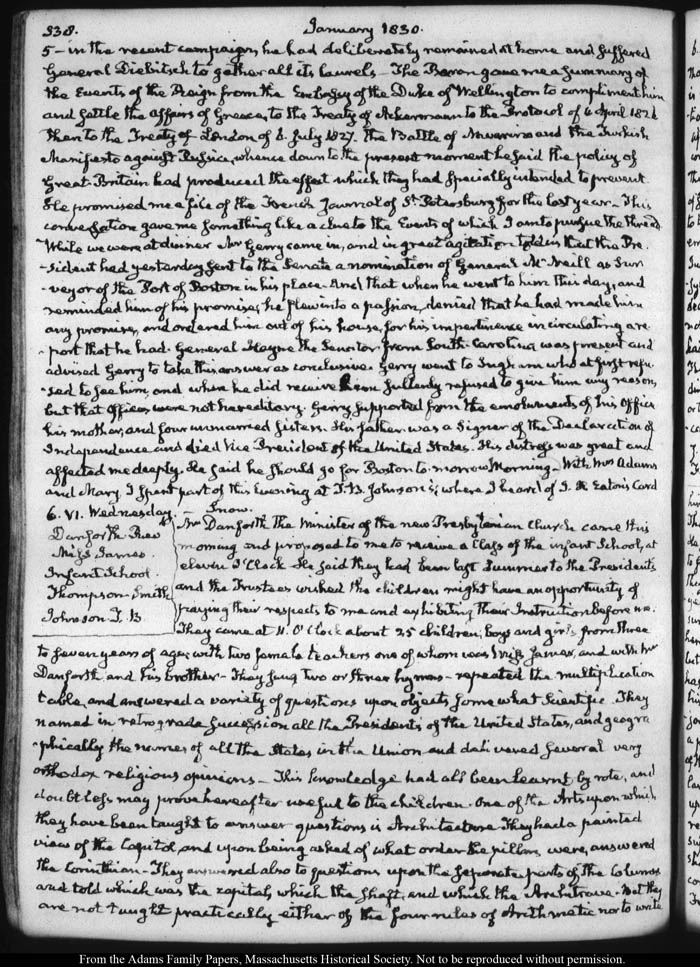 338. January 1830.
5 – in the recent campaign, he had deliberately remained at home and suffered
General Diebitsch to gather all its laurels – The Baron gave me a summary of
the Events of the Reign from the Embassy of the Duke of Wellington to compliment him
and settle the affairs of Greece, to the Treaty of Ackermann to the Protocol of 6 April 1826
then to the Treaty of London of 6. July 1827. the Battle of Navarino and the Turkish
Manifesto against Russia, whence down to the present moment he said the policy of
Great-Britain had produced the effect which they had specially intended to prevent.
He promised me a file of the French Journal of St. Petersburg for the last year – This
conversation gave me something like a clue to the Events of which I am to pursue the thread
While we were at dinner Mr Gerry came in, and in great agitation told us that the Pre-
-sident had yesterday sent to the Senate a nomination of General McNeill as Sur
-veyor of the Port of Boston in his place. And that when he went to him this day, and
reminded him of his promise, he flew into a passion, denied that he had made him
any promise, and ordered him out of his house, for his impertinence in circulating a re-
-port that he had. General Hayne the Senator from South-Carolina was present and
advised Gerry to take this answer as conclusive. Gerry went to Ingham who at first refu
-sed to see him, and when he did receive him sullenly refused to give him any reason,
but that Offices were not hereditary. Gerry supported from the emoluments of his Office
his mother, and four unmarried Sisters. His father was a Signer of the Declaration of
Independence and died Vice-President of the United States. His distress was great and
affected me deeply. He said he should go for Boston to-morrow Morning – With Mrs Adams
and Mary I spent part of this Evening at T. B. Johnson's; where I heard of J. H. Eaton's Card
6. VI. Wednesday. – Snow.
Danforth Revd
Miss James
Infant School.
Thompson Smith
Johnson T. B.
Mr Danforth the Minister of the new Presbyterian Church came this
morning and proposed to me to receive a Class of the infant School, at
eleven O'Clock – He said they had been last Summer to the Presidents
and the Trustees wished the children might have an opportunity of
paying their respects to me and exhibiting their Instruction before me.
They came at 11. O'Clock about 25 children, boys and girls from three
to seven years of age; with two female teachers one of whom was Miss James, and with Mr
Danforth and his brother – They sung two or three hymns – repeated the multiplication
table, and answered a variety of questions upon objects somewhat scientific. They
named in retrograde succession all the Presidents of the United States, and geogra
-phically the names of all the States in the Union and delivered several very
orthodox religious opinions – This knowledge had all been learnt by rote, and
doubtless may prove hereafter useful to the children. One of the Arts upon which
they have been taught to answer questions is Architecture. They had a painted
view of the Capitol, and upon being asked of what order the pillars were, answered
the Corinthian – They answered also to questions upon the separate parts of the Columns
and told which was the capital, which the shaft, and which the Architrave – But they
are not taught practically either of the four rules of Arithmetic nor to write
From the Adams Family Papers, Massachusetts Historical Society. Not to be reproduced without permission.